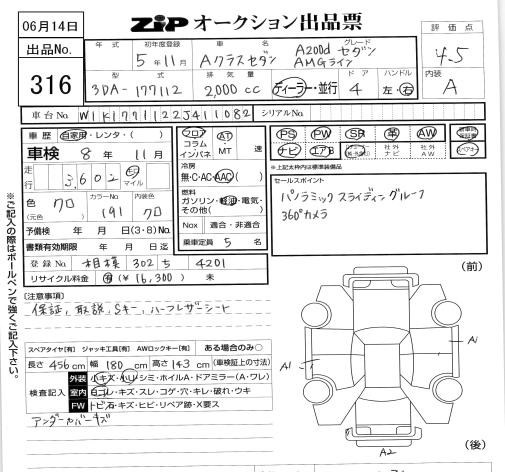 06月14日
ZIP オークション出品票
出品No.
316
評価点
4.5
内装
A
年式 初年度登録 車名 グレード
5年11月 Aクラスセダン A200d セダン AMGライン
型式 排気量 ドア ハンドル
3DA-177112 2,000cc ディーラー・並行 4 左・右
車台No W1K1771122J411082 シリアルNo.
車歴 自家用・レンタ・( )
車検 8年 11月
走行 3,602 キロ マイル
色(元色) クロ カラーNo 191 内装色 クロ
予備検 年 月 日(3・8)No.
書類有効期限 年 月 日迄
登録No 相模 302 ち 4201
リサイクル料金 有 ¥16,300) 未
フロア コラム インパネ
AT ・ MT 速
冷房
無・C・AC・AAC
燃料
ガソリン・軽油・電気・その他( )
Nox 適合・非適合
乗車定員 5 名
PS PW SR 革 AW
ナビ エアB 社外ナビ 社外AW
※上記太枠内は標準装備品
セールスポイント
パノラミック スライディングルーフ
360°カメラ
[注意事項]
保証,取説,Sキー,ハーフレザーシート
スペアタイヤ[有] ジャッキ工具[有] AWロックキー[有] ある場合のみ〇
長さ 456cm 幅 180cm 高さ 143cm (車検証上の寸法)
検査記入
外装 小キズ・小凹・シミ・ホイルA・ドアミラー(A・ワレ)
室内 白コレ・キズ・スレ・コゲ・穴・キレ・破れ・ウキ
FW トビ石・キズ・ヒビ・リペア跡・X要ス
アンダーカバーキズ
(前)
A1
A1
A2
(後)
※ご記入の際はボールペンで強くご記入下さい。